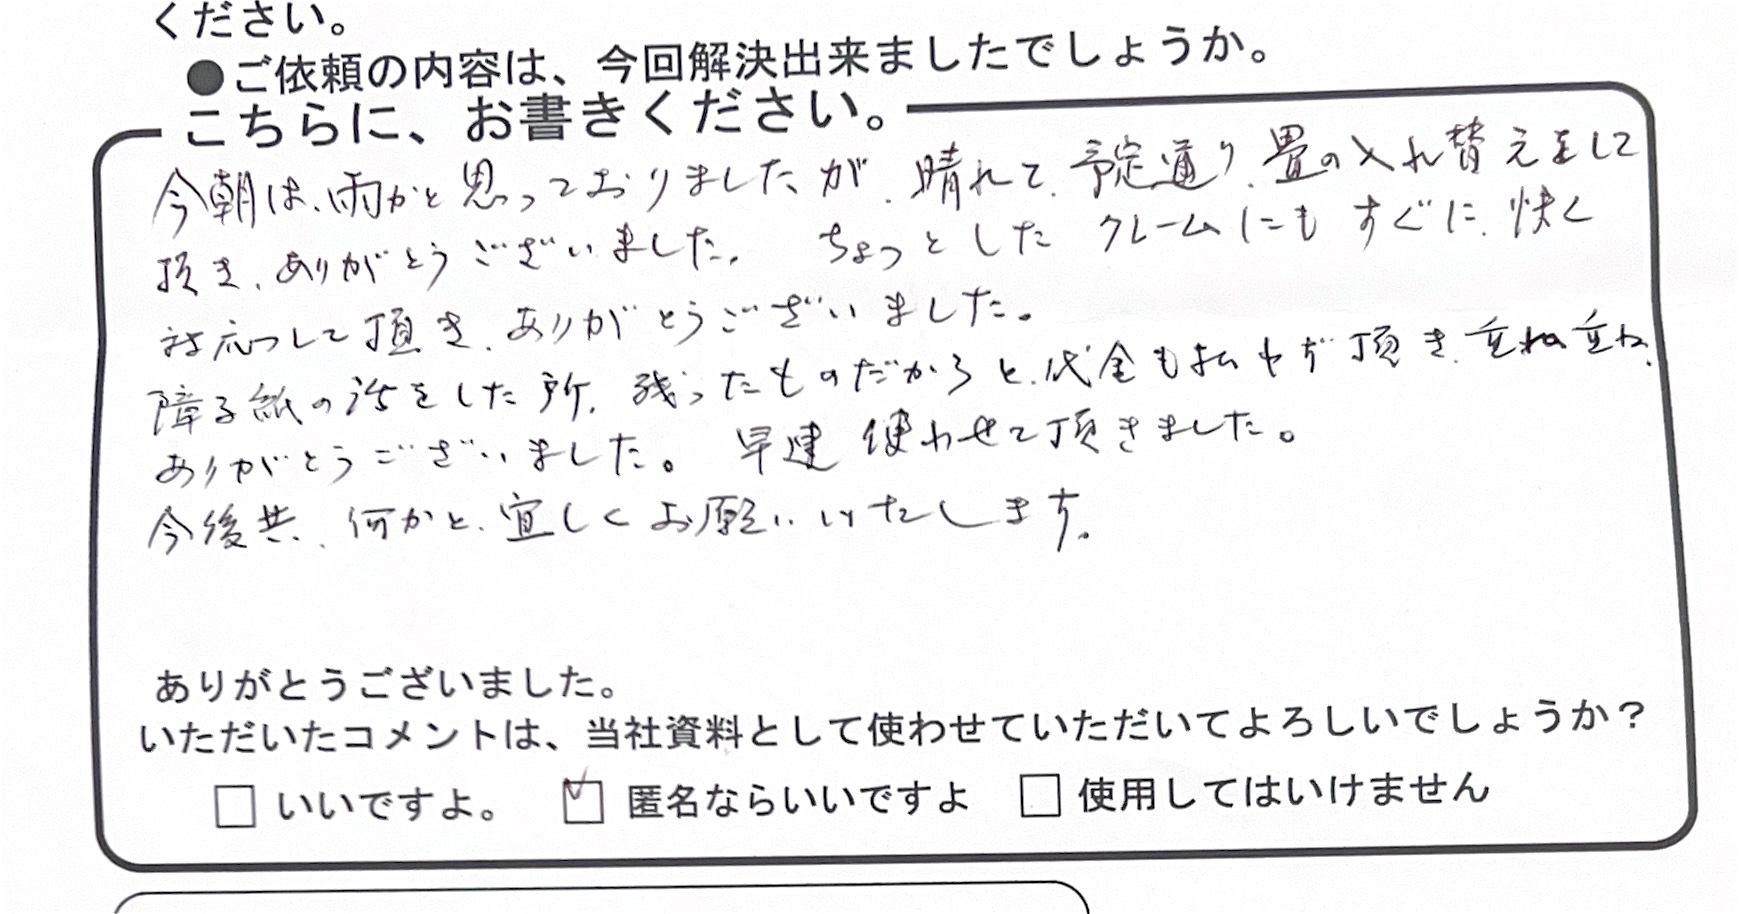 ください。
●ご依頼の内容は、今回解決出来ましたでしょうか。
こちらに、お書きください。
今朝は、雨かと思っておりましたが、晴れて、予定通り、畳の入れ替えをして
頂き、ありがとうございました。 ちょっとした クレームにも すぐに、快く
対応して頂き、ありがとうございました。
障子紙の話をした所、残ったものだからと、代金も払わず頂き、重ね重ね、
ありがとうございました。 早速 使わせて頂きました。
今後共、何かと、宜しくお願いいたします。
ありがとうございました。
いただいたコメントは、当社資料として使わせていただいてよろしいでしょうか？
□ いいですよ。 ☑ 匿名ならいいですよ □ 使用してはいけません